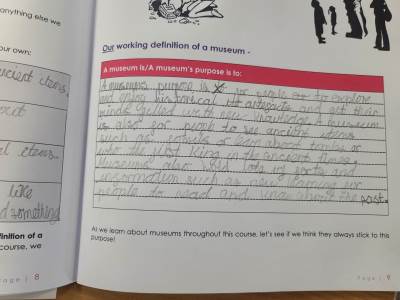 anything else we
our own:
ancient items,
items.
like
d something
finition of a
course, we
Page | 8
Our working definition of a museum -
A museum is/A museum's purpose is to:
A museums purpose is for people to explore
and enjoy historical artefacts and get their
minds filled with new knowledge. A museum
is also for people to see ancient items
such as or learn about tombs or
who the first king in the ancient times.
Museums also lots of facts and
information such as
people to read and know about the past.
As we learn about museums throughout this course, let's see if we think they always stick to this
purpose!
Page | 9